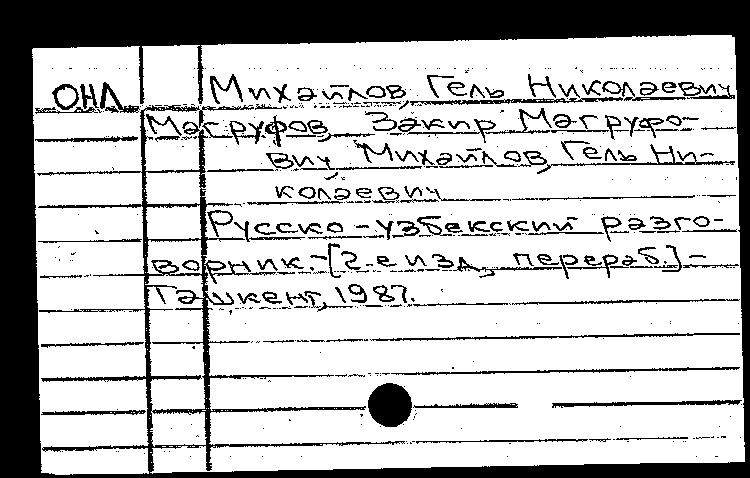 ОНЛ Михайлов, Гель Николаевич
Магруфов, Закир Магруфо-
вич, Михайлов, Гель Ни-
колаевич
Русско-узбекский разго-
ворник.-[2-е изд., перераб.]-
Ташкент, 1987.